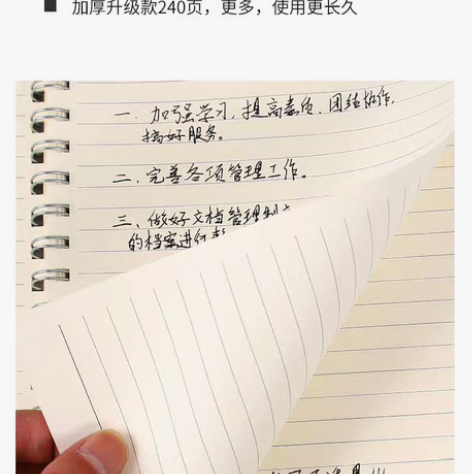 加厚升级款240页，更多，使用更长久
一. 加强学习,提高素质.团结协作,
搞好服务。
二、完善各项管理工作。
三、做好文档管理制
的档案进行